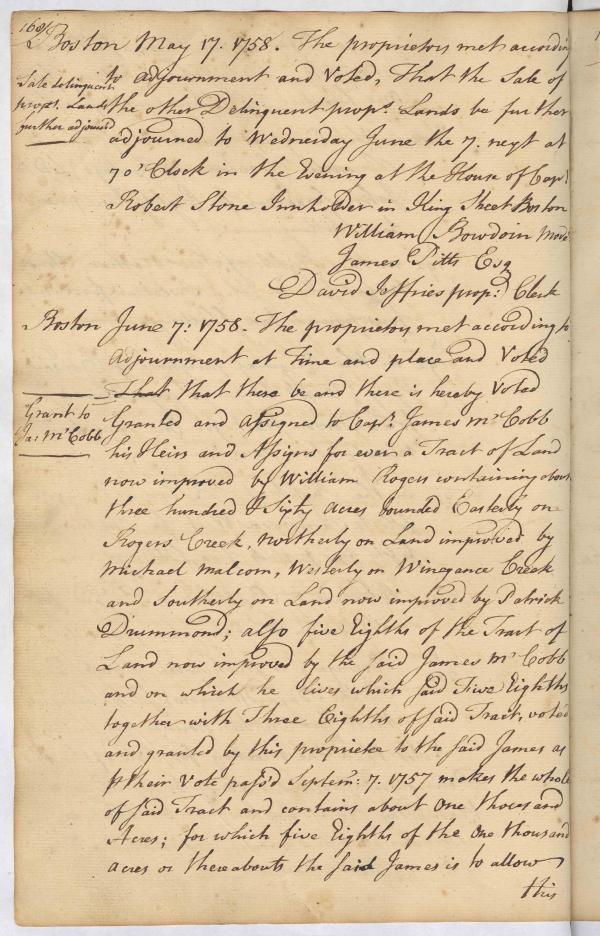 168
Boston May 17. 1758. The proprietors met according
to adjournment and Voted, That the Sale of
Sale delinquent
prop.s Lands
further adjourn'd
the other Delinquent prop.s Lands be further
adjourned to Wednesday June the 7. next at
7 o'Clock in the Evening at the House of Cap.t
Robert Stone Innholder in King Street Boston
William Bowdoin Mod.r
James Pitts Esq
David Jeffries prop.s Clerk
Boston June 7: 1758. The proprietors met according to
adjournment at Time and place and Voted
That that there be and there is hereby Voted
Grant to
Ja: McCobb
Granted and assigned to Cap.t James McCobb
his Heirs and Assigns for ever a Tract of Land
now improved by William Rogers containing about
three hundred & Sixty Acres bounded Easterly on
Rogers Creek, Northerly on Land improved by
Michael Malcom, Westerly on Winegance Creek
and Southerly on Land now improved by Patrick
Drummond; also five Eighths of the Tract of
Land now improved by the said James McCobb
and on which he lives which said Five Eighths
together with Three Eighths of said Tract, voted
and granted by this proprietee to the said James as
⅌ their Vote pass'd Septem: 7. 1757 makes the whole
of said Tract and contains about One thousand
Acres; for which five Eighths of the One thousand
acres or thereabouts the said James is to allow
this